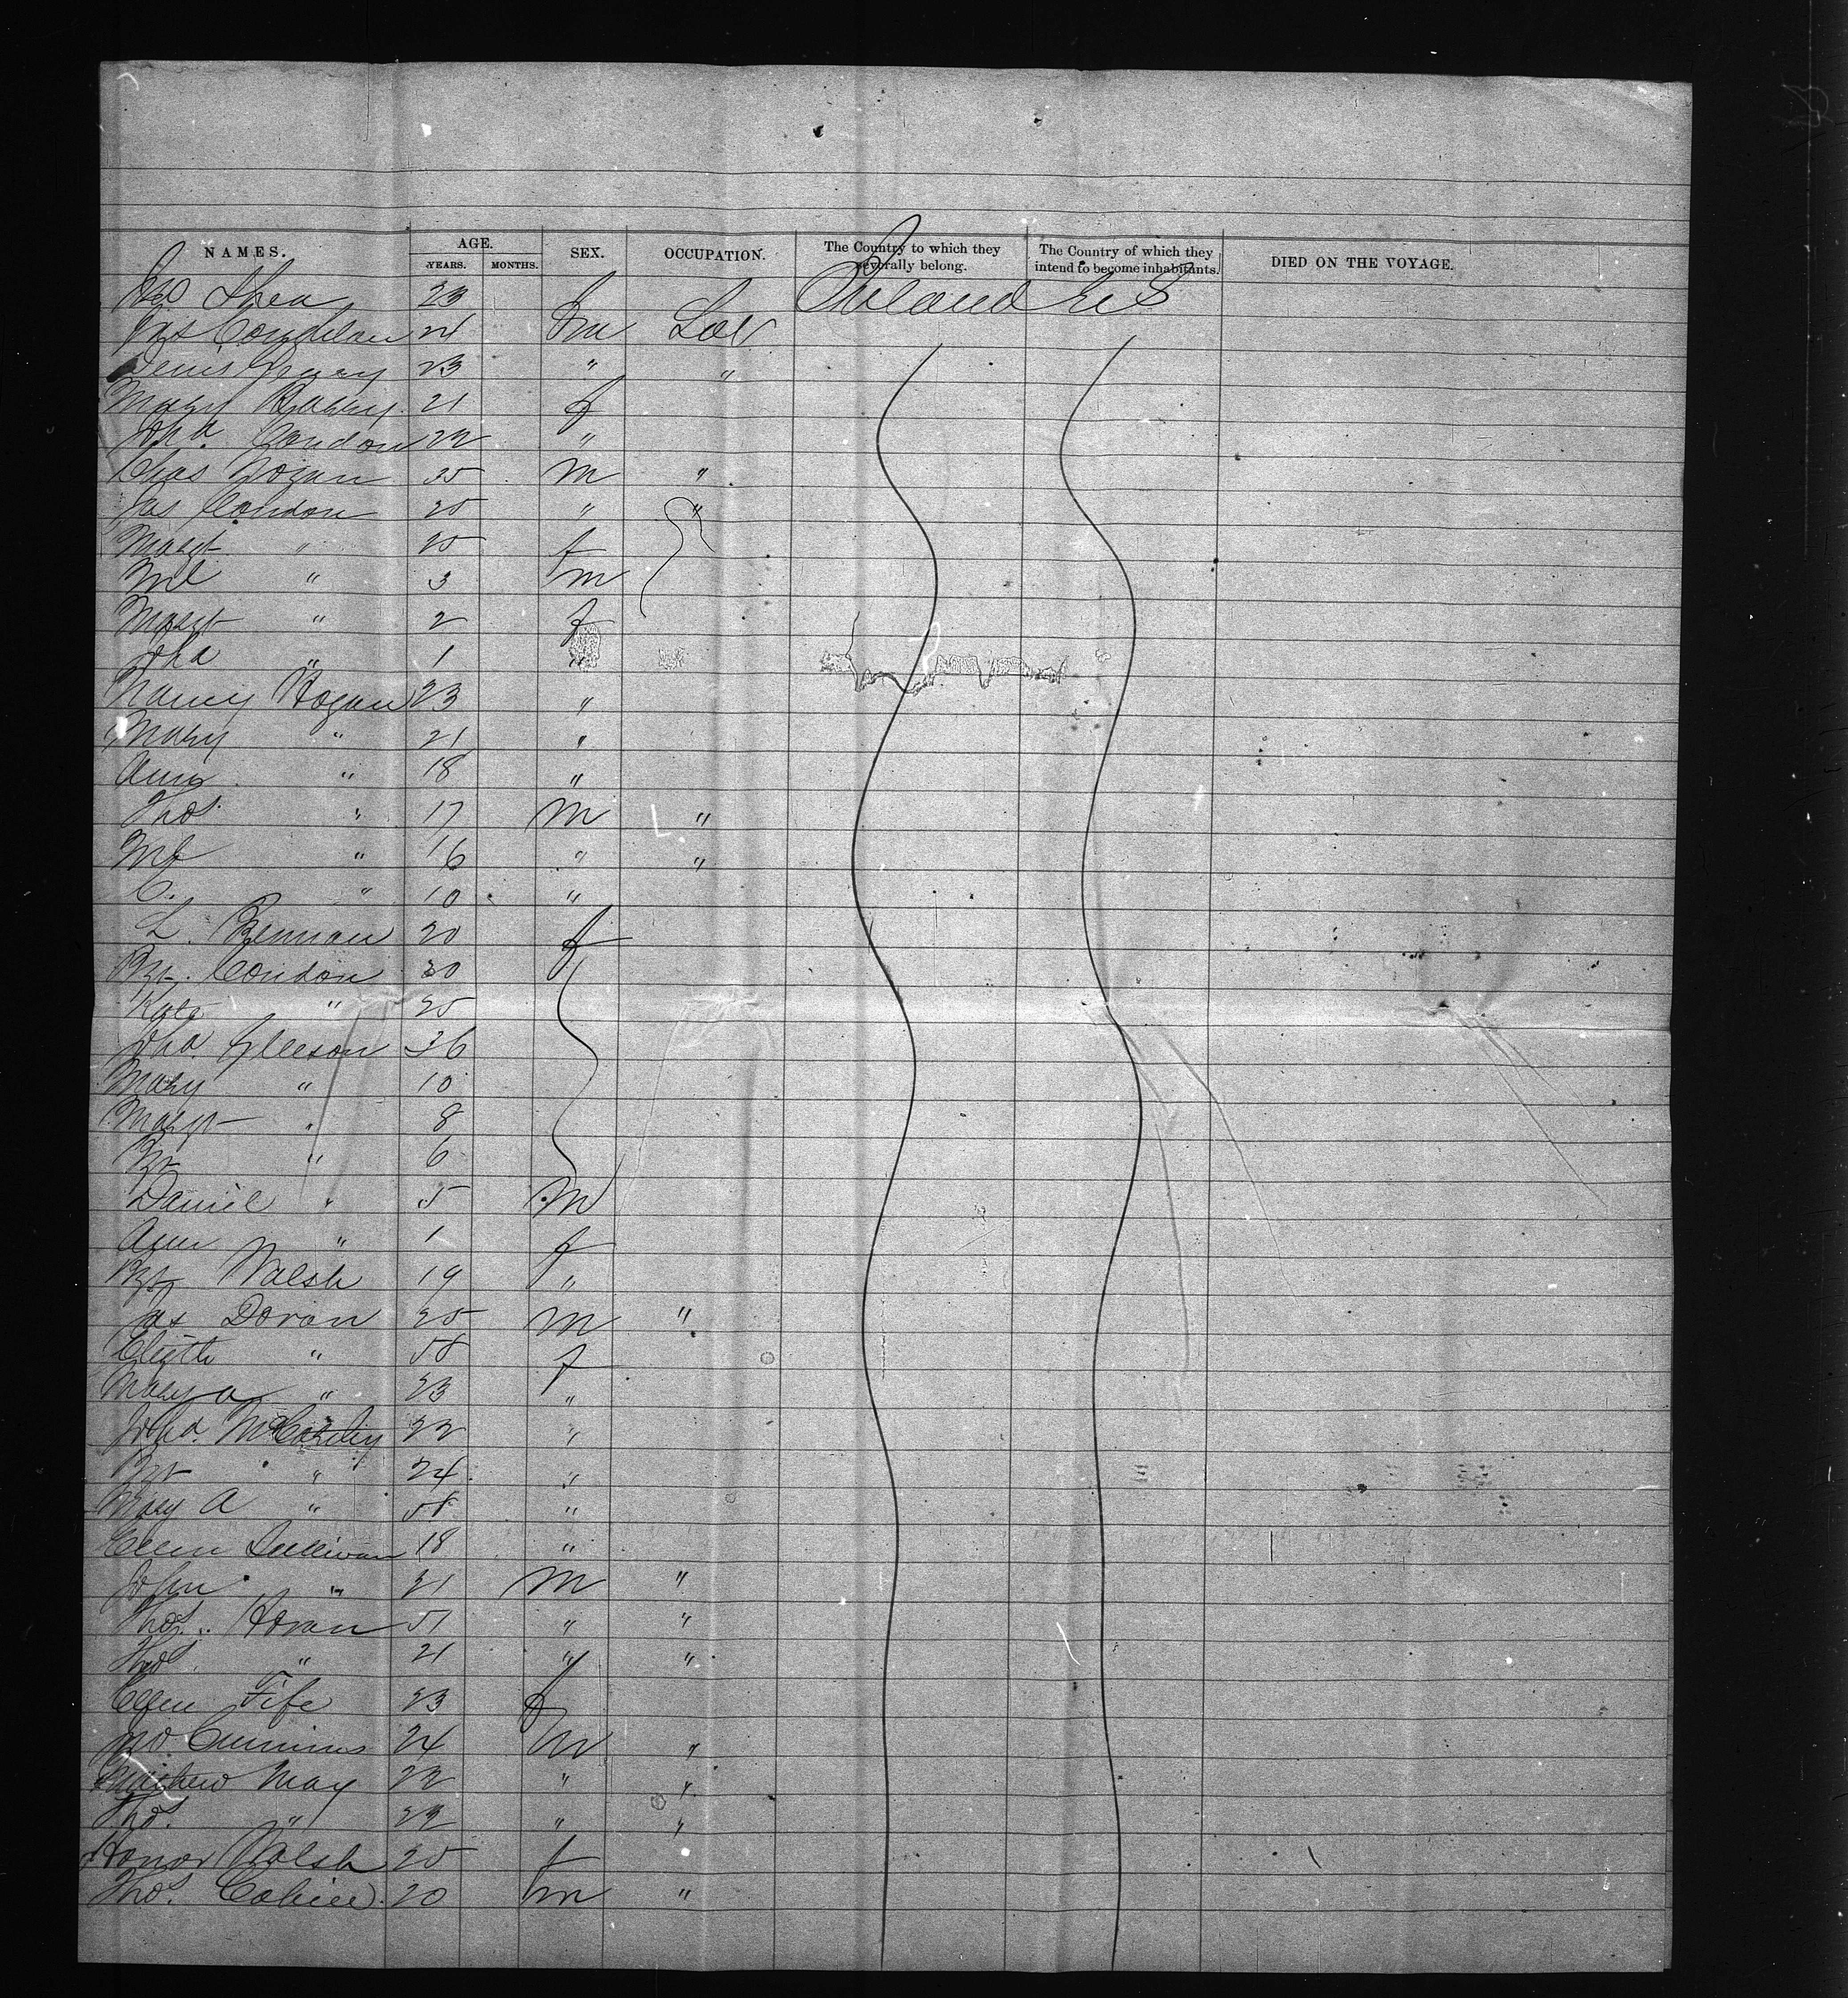 NAMES. AGE. SEX. OCCUPATION. The Country to which they severally belong. The Country of which they intend to become inhabitants. DIED ON THE VOYAGE.
YEARS. MONTHS.
Jno Shea 23 Ireland U S
Jas 24 m Lab
Denis 23 " "
Mary Barry 21 f
Joha. Condon 22 "
Chas Hogan 35 m "
Jas Condon 25 " "
Margt " 25 f
Ml " 3 m
Margt " 2 f
Joha " 1 "
Nancy Hogan 23 "
Mary " 21 "
Ann " 18 "
Thos " 17 m "
Ml " 16 " "
C. " 10 "
L. Brennan 20 f
Bgt. Condon 30
Kate " 25
Joha. Gleeson 36
Mary " 10
Margt " 8
Bgt " 6
Daniel " 5 m
Ann " 1 f
Bgt Walsh 19 "
Jas Doran 25 m "
Elizth " 58 f
Mary A " 23 "
Joha. McCarthy 22 "
Bgt " 24 "
Mary A " "
Ellen Sullivan 18 "
John " 21 m "
Thos. Horan 51 " "
Thos " 21 " "
Ellen Fife 23 f
Jno Cummins 24 m "
Mathew May 22 " "
Thos. " 22 " "
Honor Walsh 25 f
Thos. Cahill 20 m "